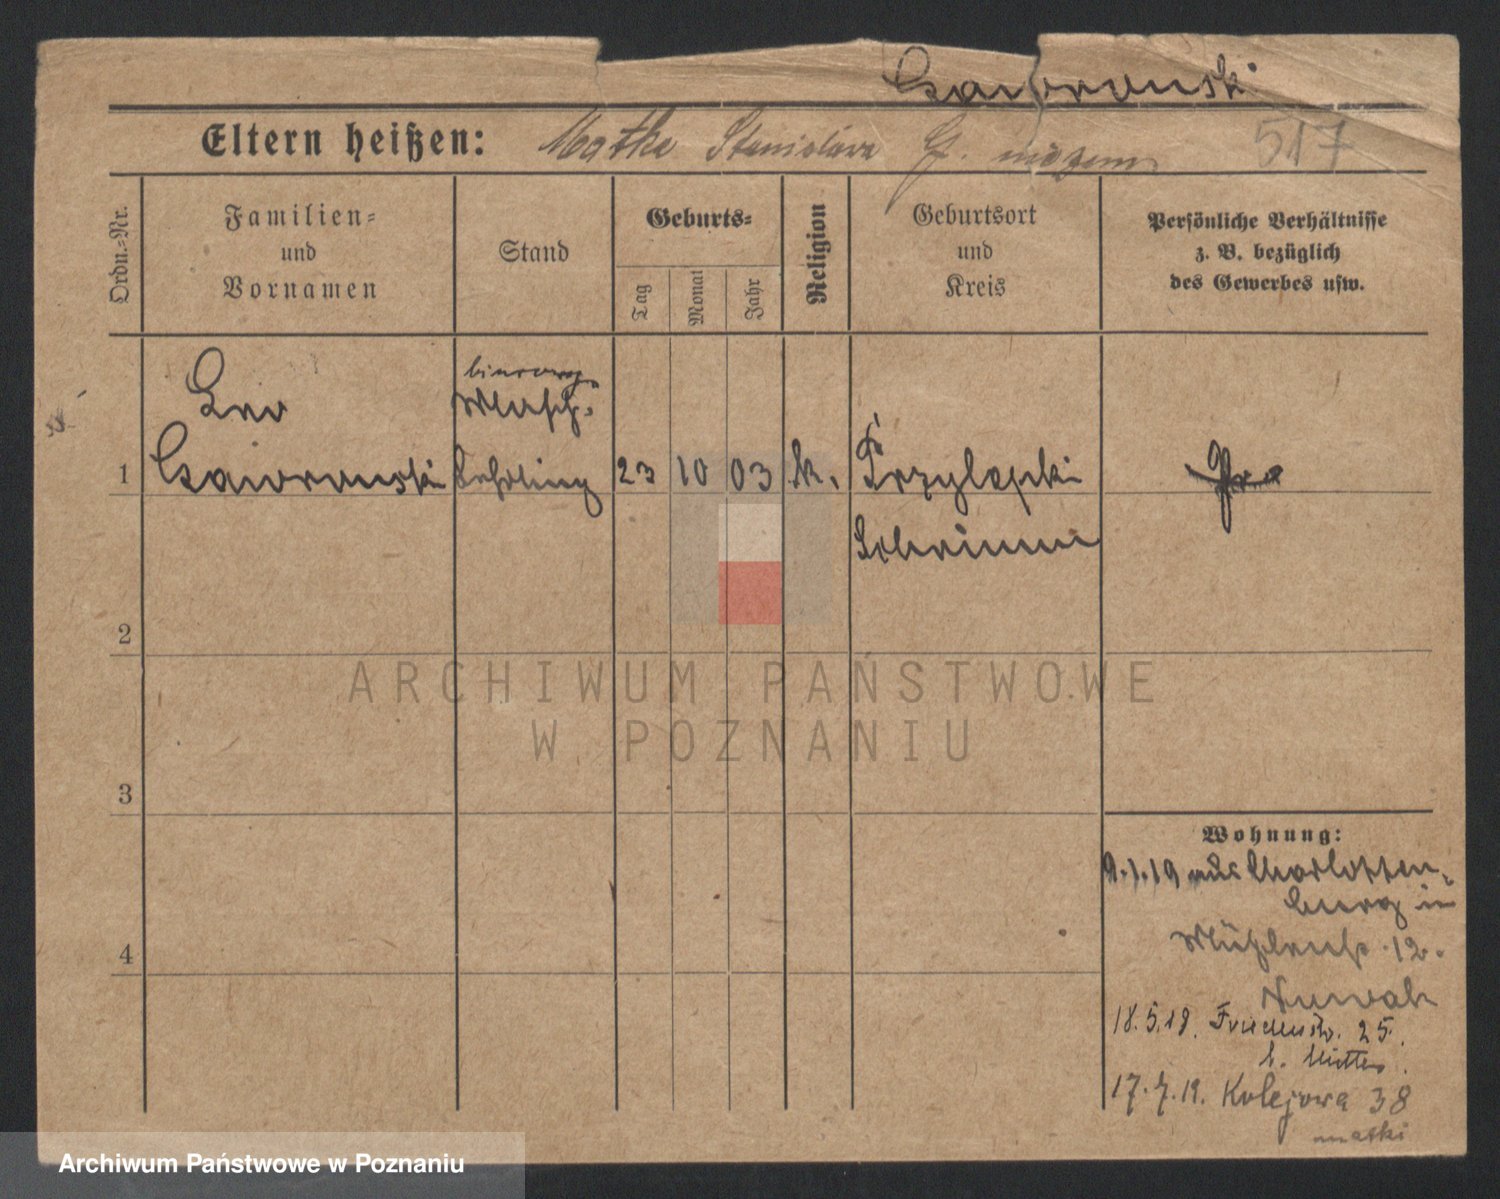 Gaworonski
Eltern heißen: Matka Stanisława G. niezam.
517
Ordn.=Nr.
Familien=
und
Vornamen
Stand
Geburts=
Tag
Monat
Jahr
Religion
Geburtsort
und
Kreis
Persönliche Verhältnisse
z. B. bezüglich
des Gewerbes usw.
Leo
Masch.
1 Lehrling 23 10 03 k. Przylepki
Schrimm
Pr
2
3
4
Wohnung:
9.1.19 aus Charlotten-
burg in
Mühlenstr. 12.
Nowak
18.5.19. Friedenstr. 25.
b. Mutter
17.7.19. Kolejowa 38
matki
ARCHIWUM PAŃSTWOWE
W POZNANIU
Archiwum Państwowe w Poznaniu